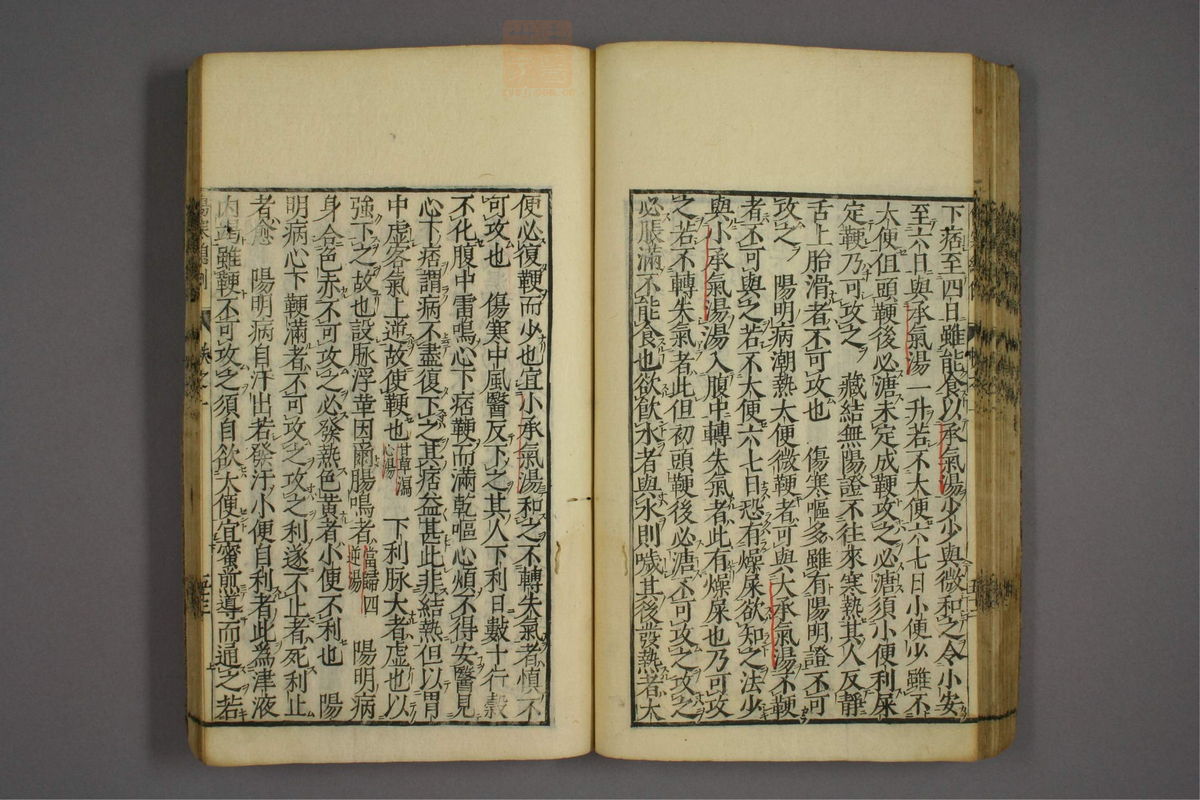 下痞至四日雖能食以承氣湯少少與微和之令小安
至六日與承氣湯一升若不大便六七日小便少雖不
大便但頭鞕後必溏未定成鞕攻之必溏須小便利屎
定鞕乃可攻之　藏結無陽證不往來寒熱其人反靜
舌上胎滑者不可攻也　傷寒嘔多雖有陽明證不可
攻之　陽明病潮熱大便微鞕者可與大承氣湯不鞕
者不可與之若不大便六七日恐有燥屎欲知之法少
與小承氣湯湯入腹中轉失氣者此有燥屎也乃可攻
之若不轉失氣者此但初頭鞕後必溏不可攻之攻之
必脹滿不能食也欲飲水者與水則噦其後發熱者大
便必復鞕而少也宜小承氣湯和之不轉失氣者慎不
可攻也　傷寒中風醫反下之其人下利日數十行穀
不化腹中雷鳴心下痞鞕而滿乾嘔心煩不得安醫見
心下痞謂病不盡復下之其痞益甚此非結熱但以胃
中虛客氣上逆故使鞕也甘草瀉心湯　下利脉大者虛也以
強下之故也設脉浮革因爾腸鳴者當歸四逆湯　陽明病
身合色赤不可攻之必發熱色黃者小便不利也　陽
明病心下鞕滿者不可攻之攻之利遂不止者死利止
者愈　陽明病自汗出若發汗小便自利者此為津液
內竭雖鞕不可攻之須自欲大便宜蜜煎導而通之若